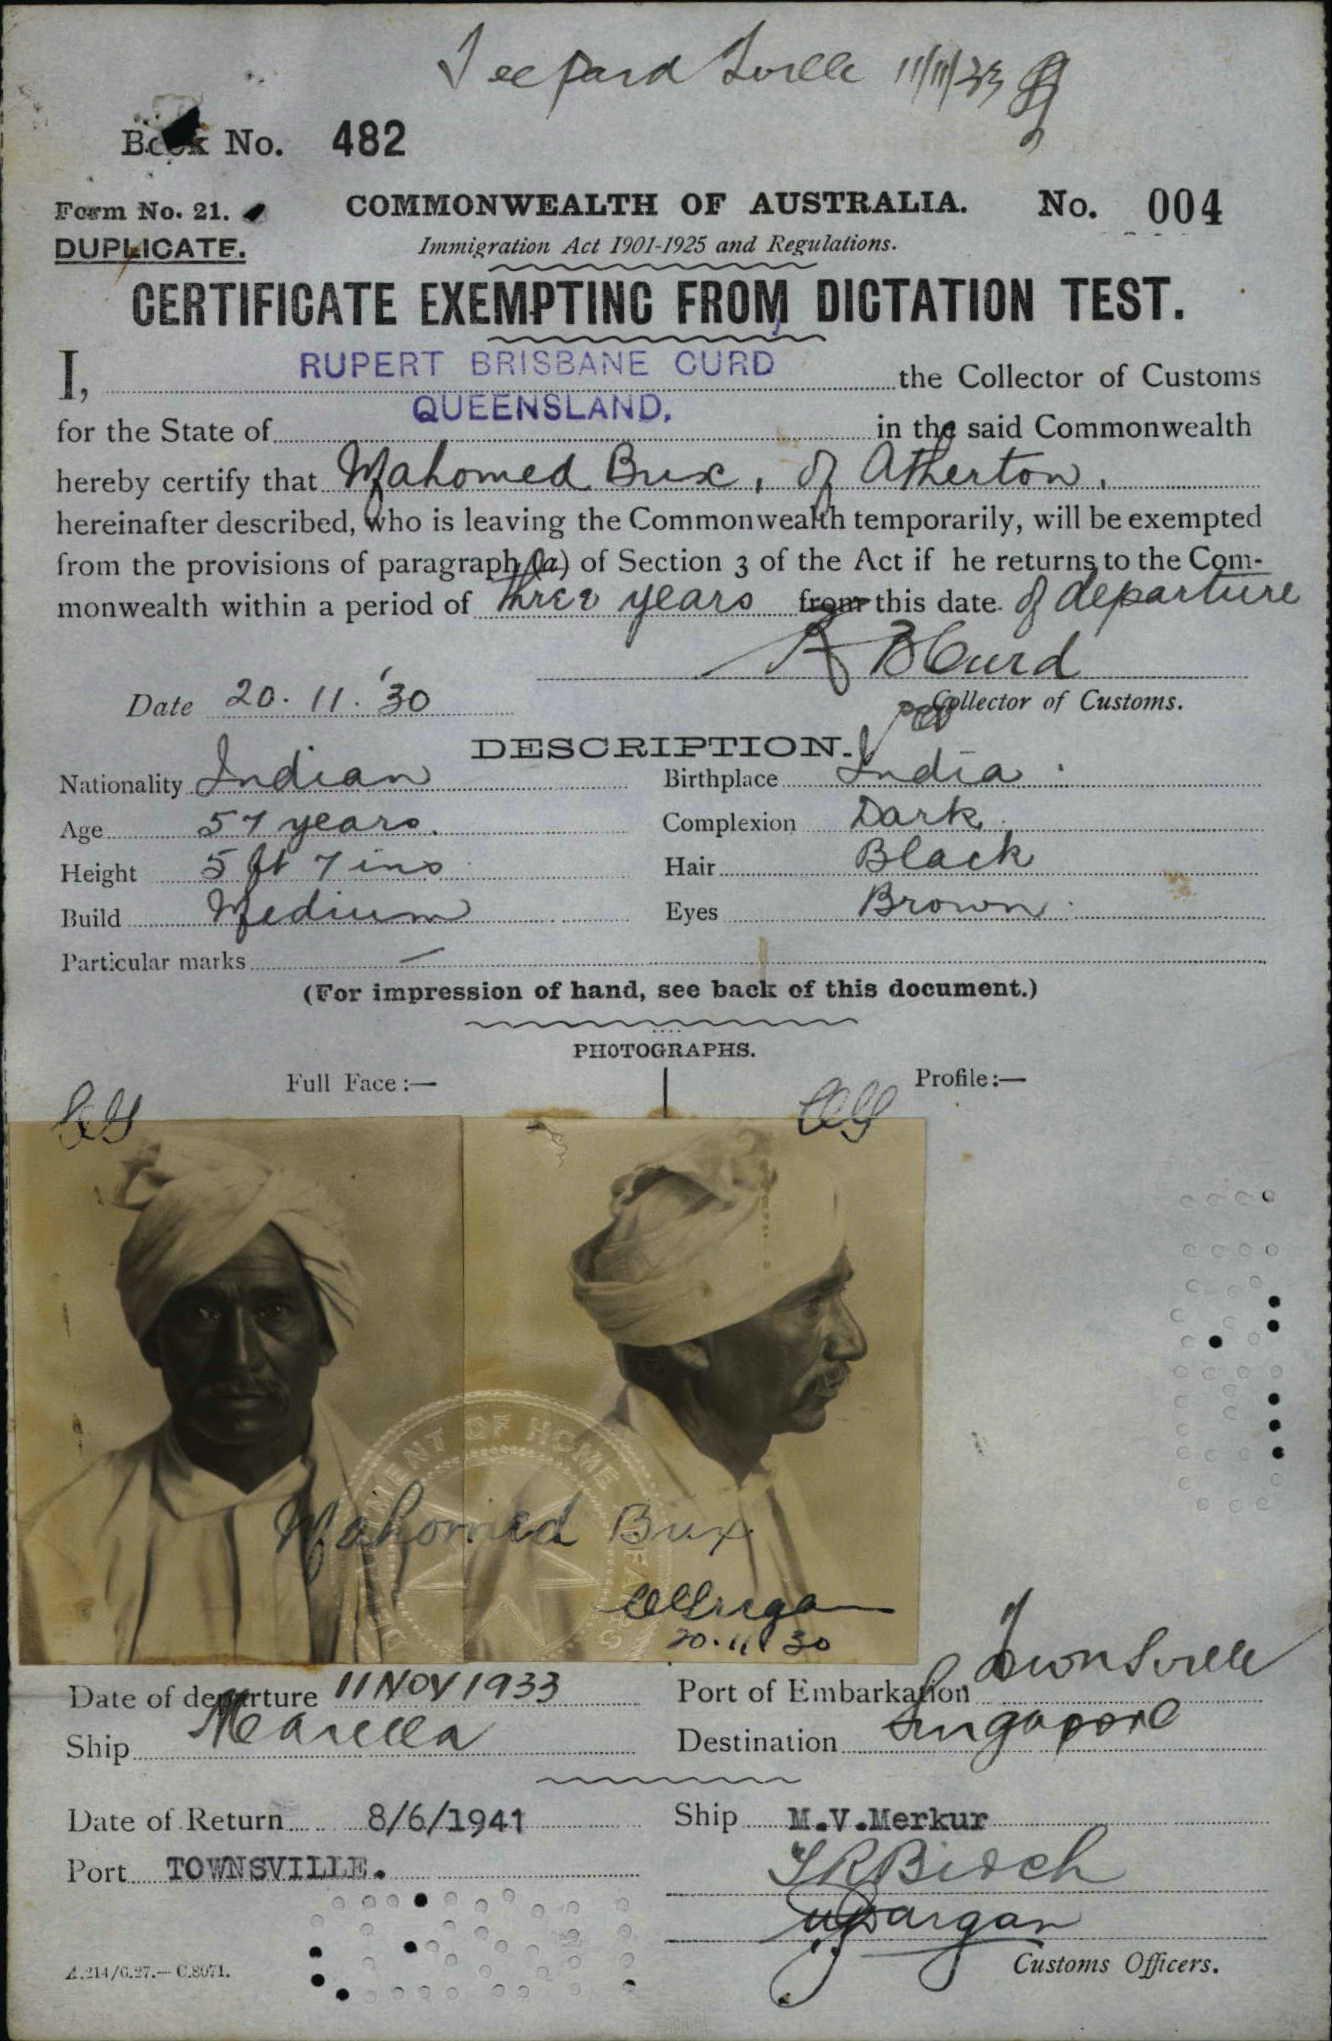 Tville 11/11/33
Book No. 482
Form No. 21. COMMONWEALTH OF AUSTRALIA. No. 004
DUPLICATE. Immigration Act 1901-1925 and Regulations.
CERTIFICATE EXEMPTING FROM DICTATION TEST.
I, RUPERT BRISBANE CURD the Collector of Customs
for the State of QUEENSLAND. in the said Commonwealth
hereby certify that Mahomed Bux, of Atherton,
hereinafter described, who is leaving the Commonwealth temporarily, will be exempted
from the provisions of paragraph (a) of Section 3 of the Act if he returns to the Com-
monwealth within a period of three years from this date of departure
R B Curd
Date 20.11.'30 Collector of Customs.
DESCRIPTION.
Nationality Indian Birthplace India
Age 57 years. Complexion Dark
Height 5 ft 7 ins Hair Black
Build Medium Eyes Brown
Particular marks —
(For impression of hand, see back of this document.)
PHOTOGRAPHS.
Full Face:— Profile:—
DEPARTMENT OF HOME AFFAIRS
Mahomed Bux
20.11.30
Date of departure 11 NOV 1933 Port of Embarkation Townsville
Ship Marella Destination Singapore
Date of Return 8/6/1941 Ship M.V.Merkur
Port TOWNSVILLE.
Customs Officers.
A.214/6.27.—C.8071.